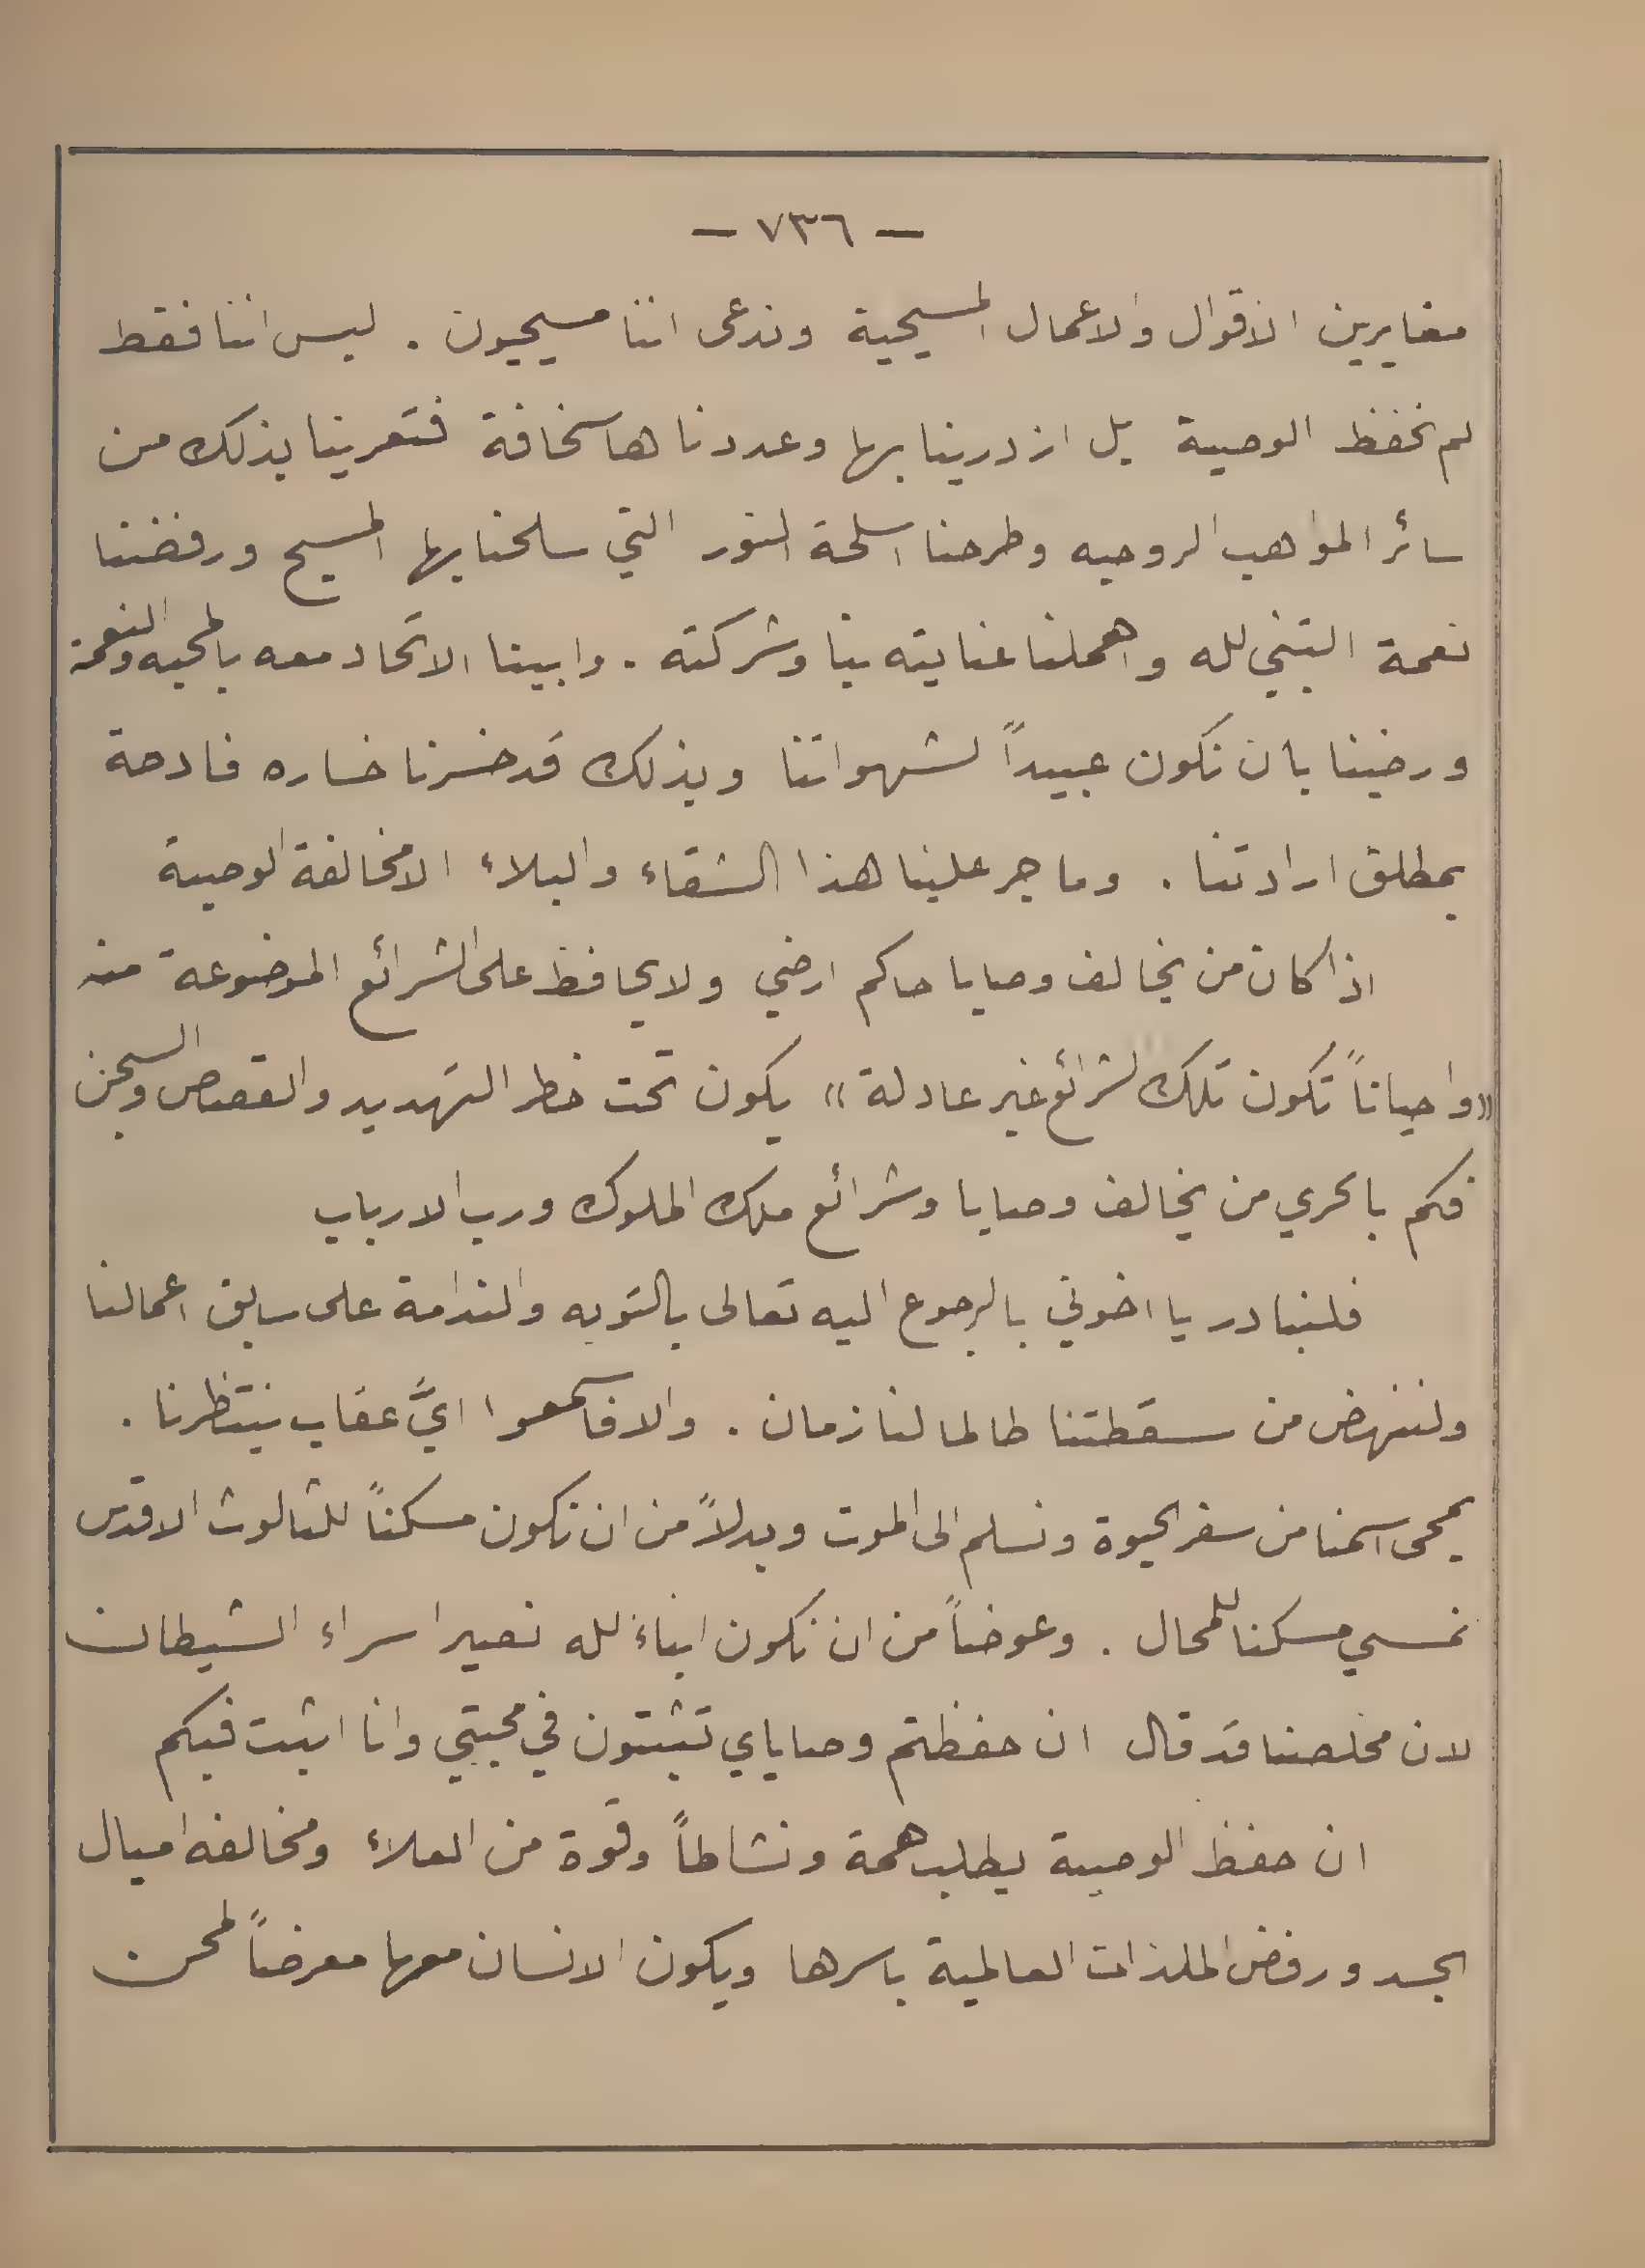 — ٧٣٦ —
مغايرين الاقوال والاعمال المسيحية وندعى اننا مسيحيون . ليس اننا فقط
لم نحفظ الوصية بل ازدرينا بها وعددناها سخافة فتعرينا بذلك من
سائر المواهب الروحيه وطرحنا اسلحة النور التي سلحنا بها المسيح ورفضنا
نعمة التبني لله واهملنا عنايته بنا وشركته . وابينا الاتحاد معه بالمحبه والنعمة
ورضينا بان نكون عبيداً لشهواتنا وبذلك قد خسرنا خساره فادحة
بمطلق ارادتنا . وما جر علينا هذا الشقاء والبلاء الا مخالفة الوصية
اذا كان من يخالف وصايا حاكم ارضي ولا يحافظ على الشرائع الموضوعة منه
«واحياناً تكون تلك الشرائع غير عادلة» يكون تحت خطر التهديد والقصاص والسجن
فكم بالحري من يخالف وصايا وشرائع ملك الملوك ورب الارباب
فلنبادر يا اخوتي بالرجوع اليه تعالى بالتوبه والندامة على سابق اعمالنا
ولننهض من سقطتنا طالما لنا زمان . والا فاسمعوا ايَّ عقاب ينتظرنا .
يمحى اسمنا من سفر الحيوة ونسلم الى الموت وبدلاً من ان نكون مسكناً للثالوث الاقدس
نمسي مسكنا للمحال . وعوضاً من ان نكون ابناء لله نصير اسراء الشيطان
لان مخلصنا قد قال ان حفظتم وصاياي تثبتون في محبتي وانا اثبت فيكم
ان حفظ الوصية يطلب همة ونشاطاً وقوة من العلاء ومخالفه اميال
الجسد ورفض الملذات العالمية باسرها ويكون الانسان معها معرضاً لمحن